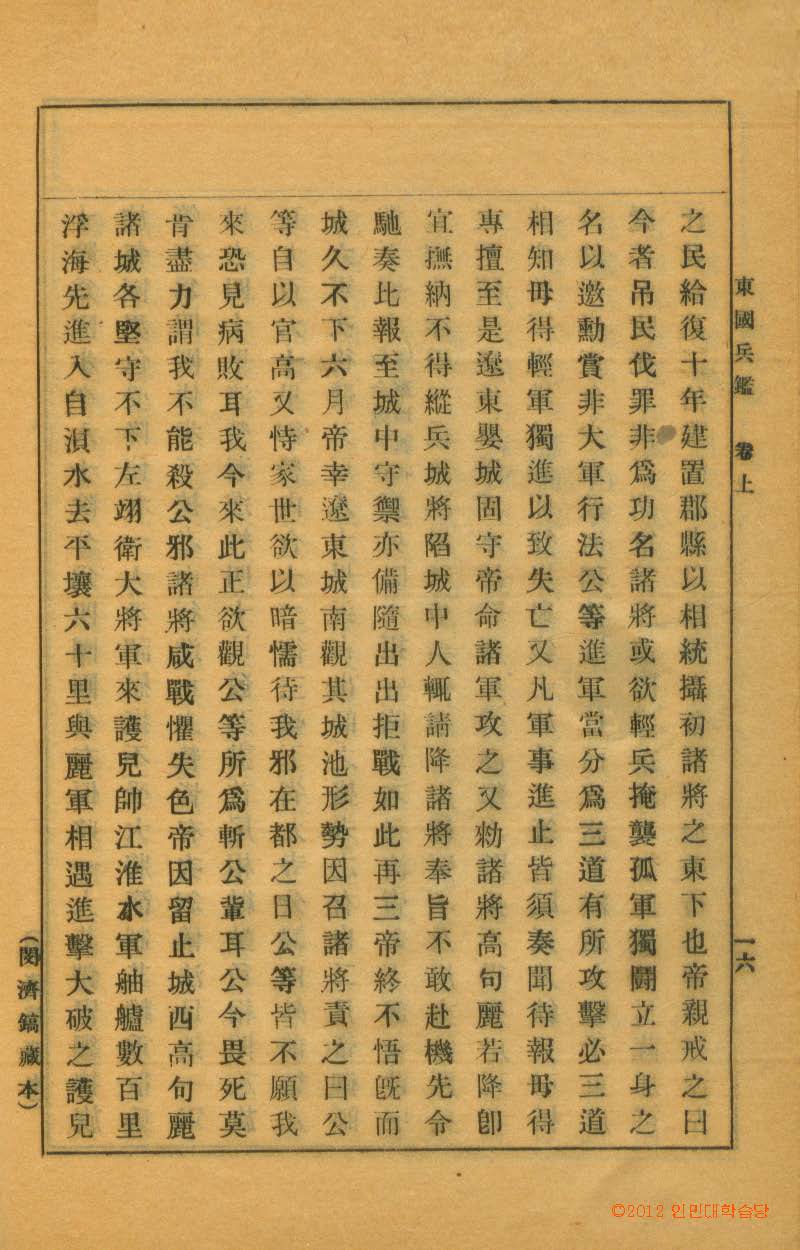 東國兵鑑　卷上　一六
之民給復十年建置郡縣以相統攝初諸將之東下也帝親戒之曰
今者吊民伐罪非爲功名諸將或欲輕兵掩襲孤軍獨鬪立一身之
名以邀勳賞非大軍行法公等進軍當分爲三道有所攻擊必三道
相知毋得輕軍獨進以致失亡又凡軍事進止皆須奏聞待報毋得
專擅至是遼東嬰城固守帝命諸軍攻之又勑諸將高句麗若降卽
宜撫納不得縱兵城將陷城中人輒請降諸將奉旨不敢赴機先令
馳奏比報至城中守禦亦備隨出出拒戰如此再三帝終不悟旣而
城久不下六月帝幸遼東城南觀其城池形勢因召諸將責之曰公
等自以官高又恃家世欲以暗懦待我邪在都之日公等皆不願我
來恐見病敗耳我今來此正欲觀公等所爲斬公輩耳公今畏死莫
肯盡力謂我不能殺公邪諸將咸戰懼失色帝因留止城西高句麗
諸城各堅守不下左翊衛大將軍來護兒帥江淮水軍舳艫數百里
浮海先進入自浿水去平壤六十里與麗軍相遇進擊大破之護兒
(閔濟鎬藏本)
©2012 인민대학습당